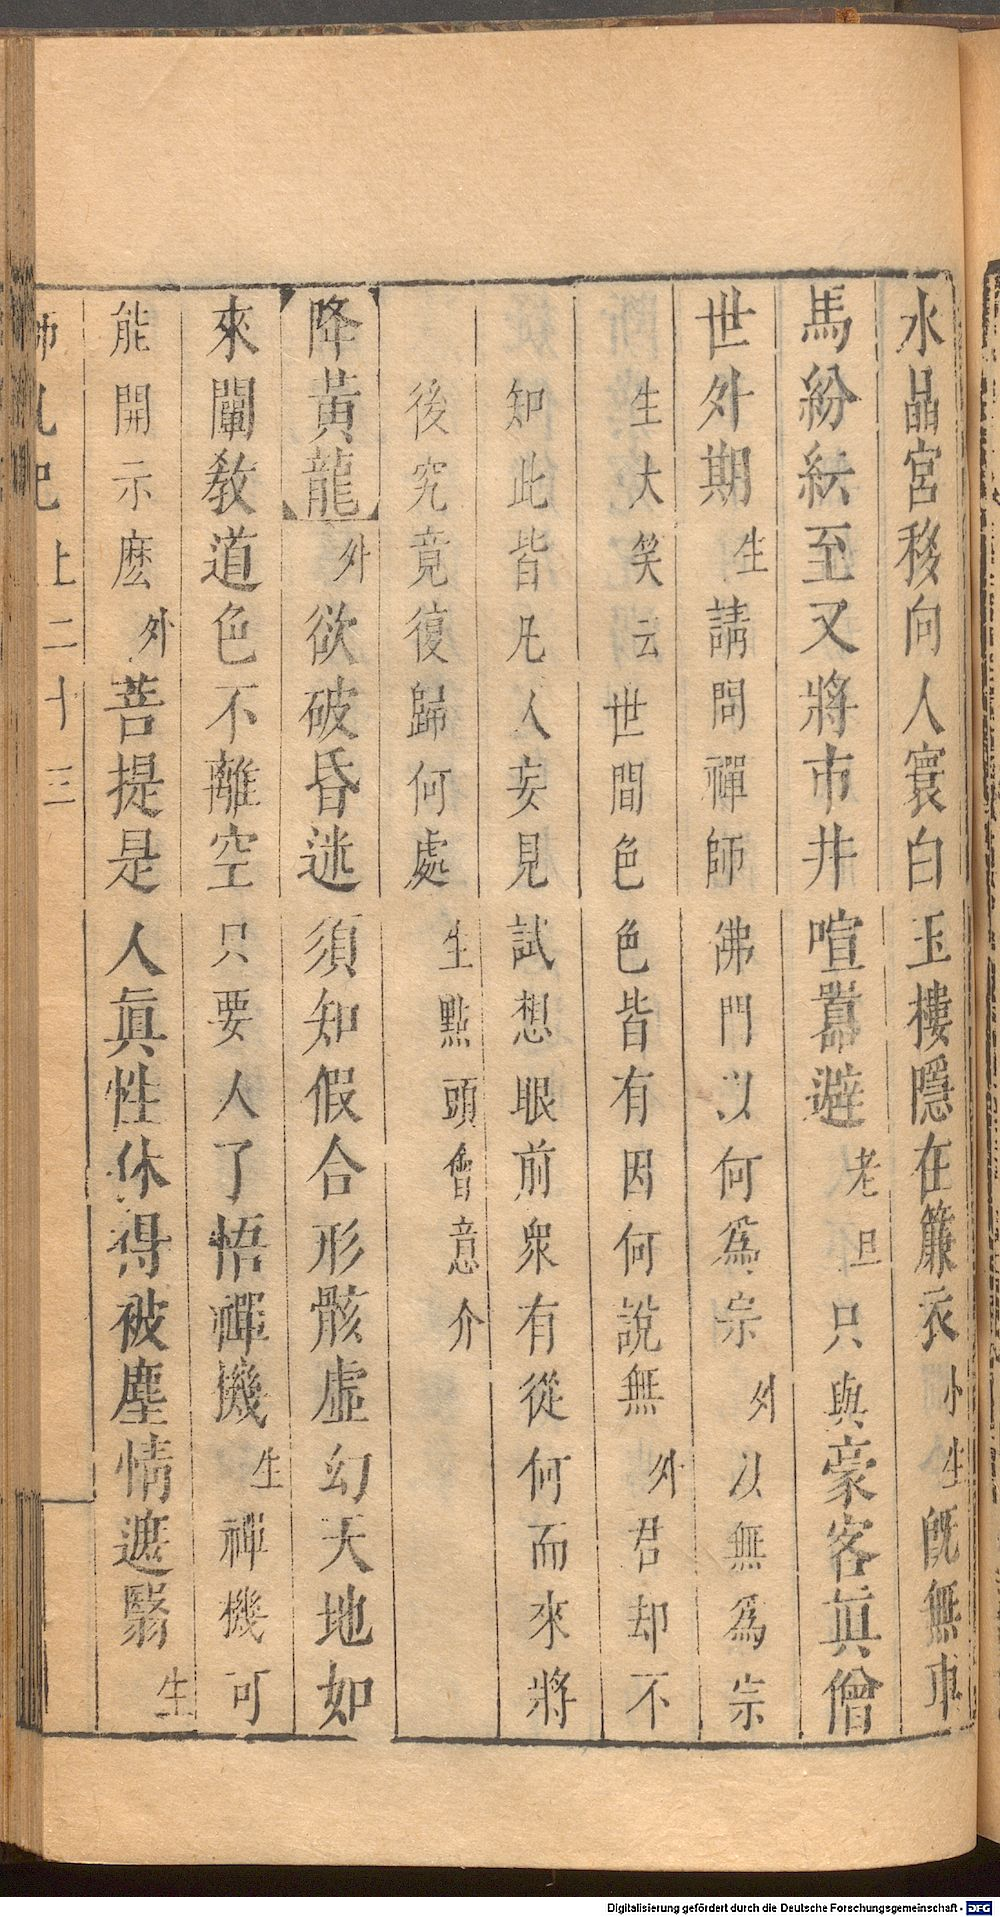 水晶宮移向人寰白玉樓隱在簾衣小生旣無車
馬紛紜至又將市井喧囂避老旦只與豪客眞僧
世外期生請問禪師佛門以何爲宗外以無爲宗
生大笑云世間色色皆有因何說無外君却不
知此皆凡人妄見試想眼前衆有從何而來將
後究竟復歸何處生點頭會意介
降黃龍外欲破昏迷須知假合形骸虛幻天地如
來闡教道色不離空只要人了悟禪機生禪機可
能開示麽外菩提是人眞性休得被塵情遮翳生
上二十三
Digitalisierung gefördert durch die Deutsche Forschungsgemeinschaft - DFG